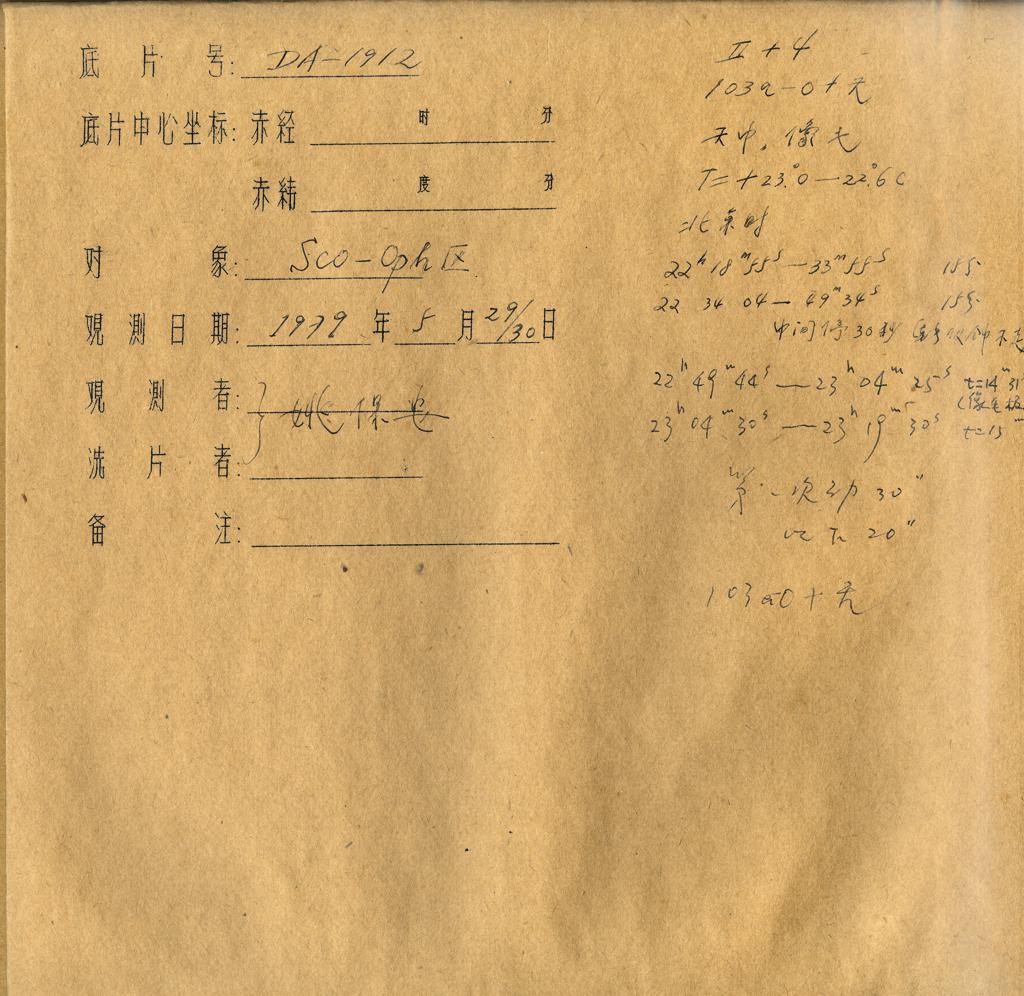 底片号: DA-1912
底片中心坐标: 赤经 时 分
赤纬 度 分
对象: Sco-Oph区
观测日期: 1979 年 5 月 29/30 日
观测者: 姚保
洗片者:
备注:
II + 4
103a-0 + 无
天中,像
T=+23.°0—22.°6C
北京时
22ʰ18ᵐ55ˢ—33ᵐ55ˢ 15分
22 34 04—49ᵐ34ˢ 15分
中间停30秒 钟不走
22ʰ49ᵐ44ˢ—23ʰ04ᵐ25ˢ t=14ᵐ31ˢ
23ʰ04ᵐ30ˢ—23ʰ19ᵐ30ˢ t=15ᵐ
第一次动 30"
以下 20"
103a0 + 无